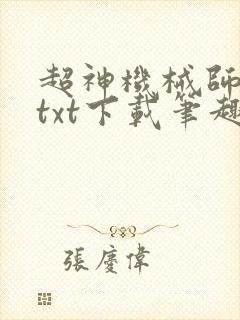 超神機械師
txt下載筆趣
張慶偉